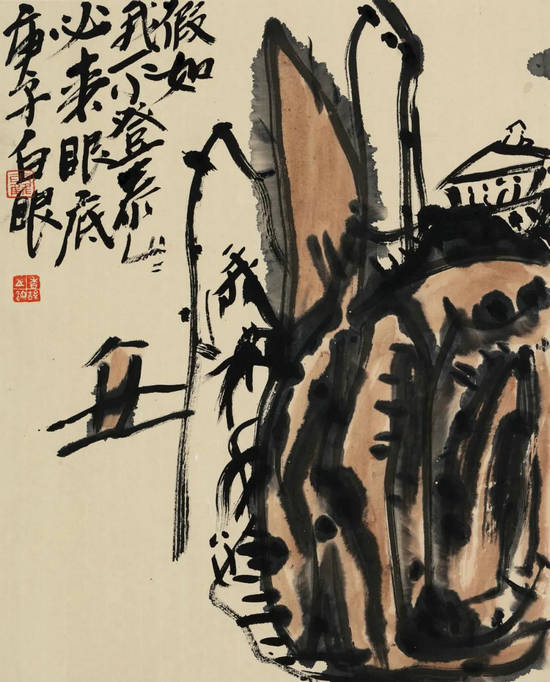 假如
我不登泰山
必来眼底
庚子白眼